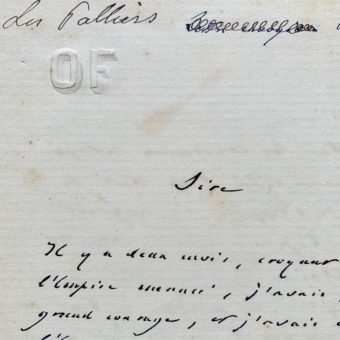 Les Palliers
OF
Sire
Il y a deux mois, croyant
l'Empire menacé, j'avais
grand courage, et j'avais